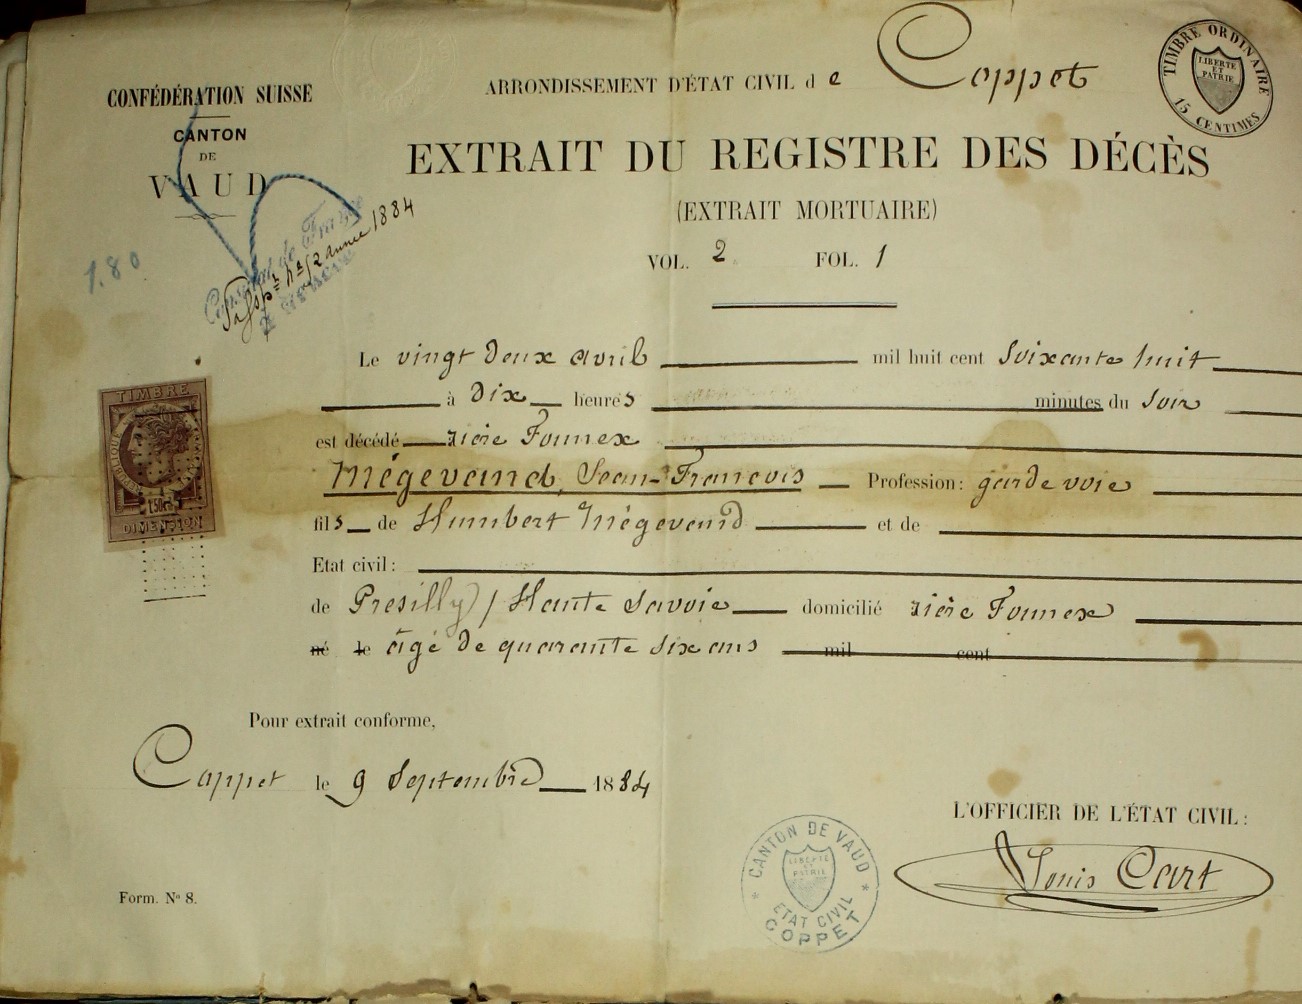 ARRONDISSEMENT D'ÉTAT CIVIL de Coppet
TIMBRE ORDINAIRE
LIBERTÉ
ET
PATRIE
15 CENTIMES
CONFÉDÉRATION SUISSE
CANTON
DE
VAUD
EXTRAIT DU REGISTRE DES DÉCÈS
(EXTRAIT MORTUAIRE)
VOL. 2 FOL. 1
Consulat de France
année 1884
1.80
Le vingt deux avril mil huit cent Soixante huit
à Dix heures minutes du Soir
est décédé rière Founex
Mégevand, Jean-François Profession: garde voie
fils de Humbert Mégevand et de
Etat civil:
de Presilly / Haute Savoie domicilié rière Founex
né le âgé de quarante six ans mil cent
TIMBRE
RÉPUBLIQUE
DIMENSION
Pour extrait conforme,
Coppet le 9 Septembre 1884
L'OFFICIER DE L'ÉTAT CIVIL:
Louis Cart
CANTON DE VAUD
LIBERTÉ
ET
PATRIE
ETAT CIVIL
COPPET
Form. No 8.